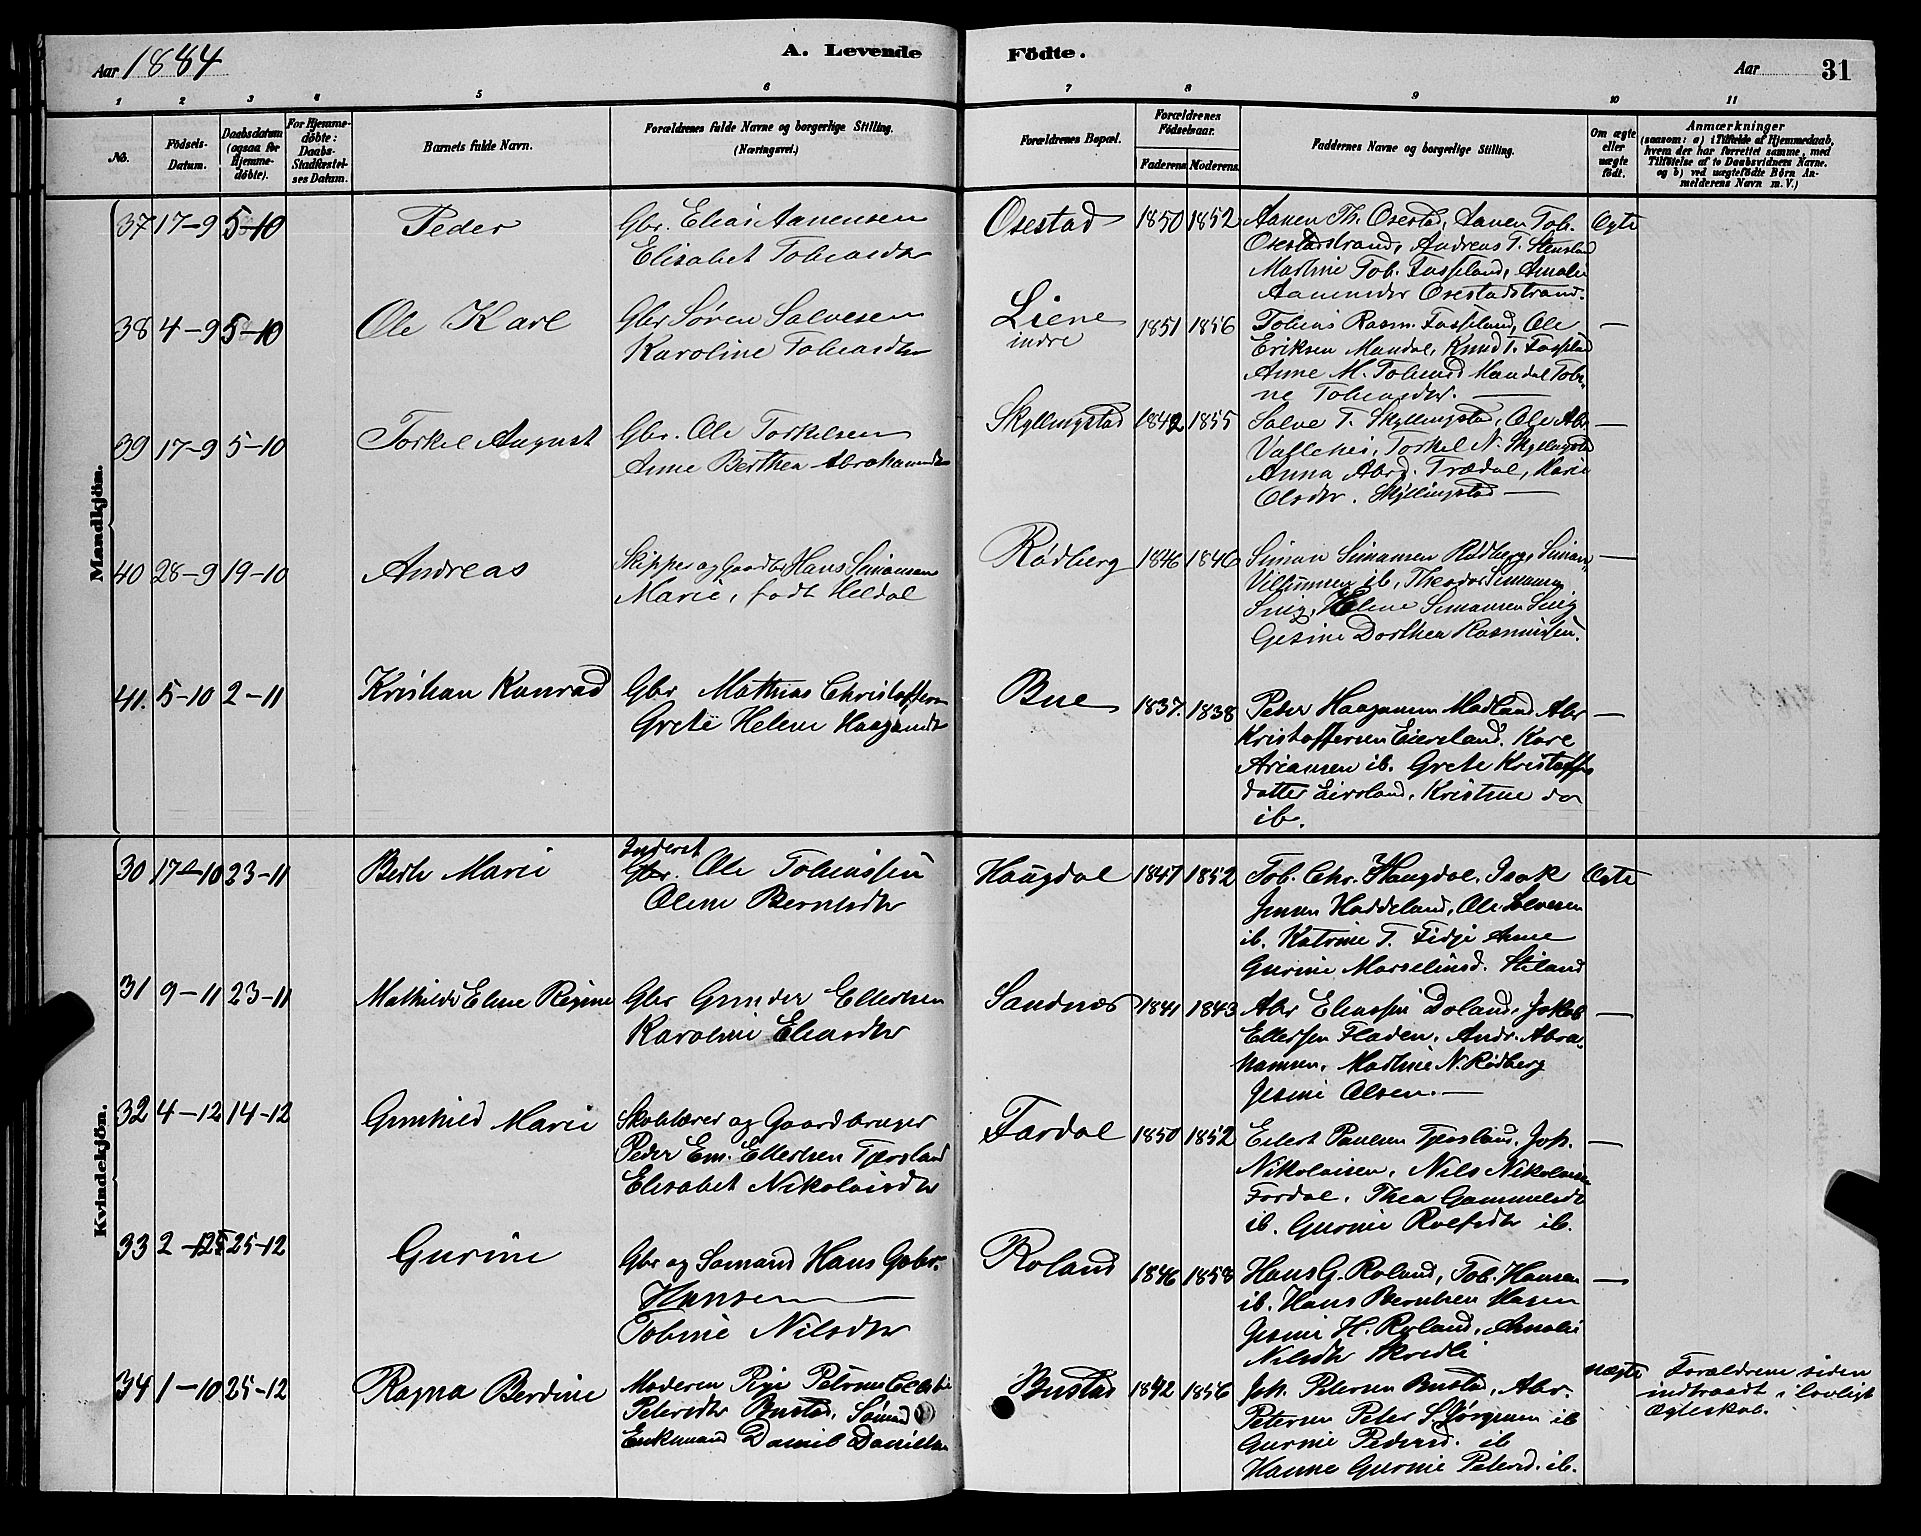 Aar 1884
A. Levende
Födte.
Aar
31
1 2 3 4 5 6 7 8 9 10 11
No.
Födsels-
Datum.
Daabsdatum
(ogsaa for
Hjemme-
döbte).
For Hjemme-
döbte:
Daabs-
Stadfæstel-
ses Datum.
Barnets fulde Navn.
Forældrenes fulde Navne og borgerlige Stilling.
(Næringsvei.)
Forældrenes Bopæl.
Forældrenes
Födselsaar.
Faderens.
Moderens.
Faddernes Navne og borgerlige Stilling.
Om ægte
eller
uægte
födt.
Anmærkninger
(saasom: a) i Tilfælde af Hjemmedaab,
hvem der har forrettet samme, med
Tilföielse af to Daabsvidners Navne.
og b) ved uægtefödte Börn An-
melderens Navn m. V.)
Mandkjön.
37 17-9 5-10 Peder
Gbr. Elias Aanensen
Elisabet Tobiasdtr
Osestad 1850 1852
Aanen Th. Osestad, Aanen Tob.
Osestadstrand, Andreas T. Stensland
Martine Tob. Fasseland, Amalie
Aanensdtr Osestadstrand.
Ægte
38 4-9 5-10 Ole Karl
Gbr Søren Salvesen
Karoline Tobiasdtr
Liene
indre
1851 1856
Tobias Rasm. Fasseland, Ole
Eriksen Mandal, Knud T. Fasseland
Anne M. Tobiasd Mandal Tobi-
ne Tobiasdtr. —
—
39 17-9 5-10 Torkel August
Gbr. Ole Torkelsen
Anne Berthea Abrahamsdtr
Skyllingstad 1842 1855
Salve T. Skyllingstad, Ole Abr.
Torkel N. Skyllingstad
Anna Abrd. Trædal, Marie
Olsdtr. Skyllingstad —
—
40 28-9 19-10 Andreas
Skipper og Gaardbr Hans Simonsen
Marie, født Heldal
Rødberg 1846 1846
Simon Simonsen Rødberg, Simon
Villumsen ib, Theodor Simonsen
Helene Simonsen
Gesine Dorthea Rasmussen.
—
41. 5-10 2-11 Kristian Konrad
Gbr Mathias Christoffersen
Grete Helene Haagensdtr
Bue 1837. 1838
Peder Haagensen Madland Abr
Kristoffersen Eieveland. Karl
Ariansen ib. Grete Kristoffers
datter Kristine do
ib.
—
Kvindekjön.
30 17-10 23-11 Berte Marie
Inderst
Gbr. Ole Tobiassen
Olene Berntsdtr
Haugdal 1847 1852
Tob. Chr. Haugdal, Isak
Jensen Haddeland, Ole Salvesen
ib. Katrine T. Fidje Anne
Gurine Marselinsd. Stiland
Ægte
31 9-11 23-11 Mathilde Elene Regine
Gbr Gunder Ellertsen
Karoline Eliasdtr
Sandnes 1841 1843
Abr Eliassen Doland, Jakob
Ellertsen Fladen, Andr. Abra-
hamsen, Martine N. Rødberg
Jesine Olsen. —
—
32 4-12 14-12 Gunhild Marie
Skolelærer og Gaardbruger
Peder Em. Ellertsen Tjersland
Elisabet Nikolaisdtr
Fardal 1850 1852
Eilert Paulsen Tjersland, Joh.
Nikolaisen, Nils Nikolaisen
Fardal. Thea Gammelsdtr
ib. Gurine Rolfsdtr ib.
—
33 2-12 25-12 Gurine
Gbr og Sømand Hans Gabr.
Hansen —
Tobine Nilsdtr
Roland 1846 1858
Hans G. Roland, Tob. Hansen
ib. Hans Berntsen
Jesine H. Roland, Amalie
Nilsdtr Skredli
—
34 1-10 25-12 Ragna Berdine
Moderen Pige Petrine
Petersdtr Bustad, Sømd
Enkemand Daniel Danielsen
Bustad 1842 1856
Joh. Petersen Bustad, Abr.
Petersen Peter S. Jørgensen ib
Gurine Pedersd. ib
Hanne Gurine Petersd. ib.
uægte
Forældrene siden
indtraadt i lovligt
Ægteskab.